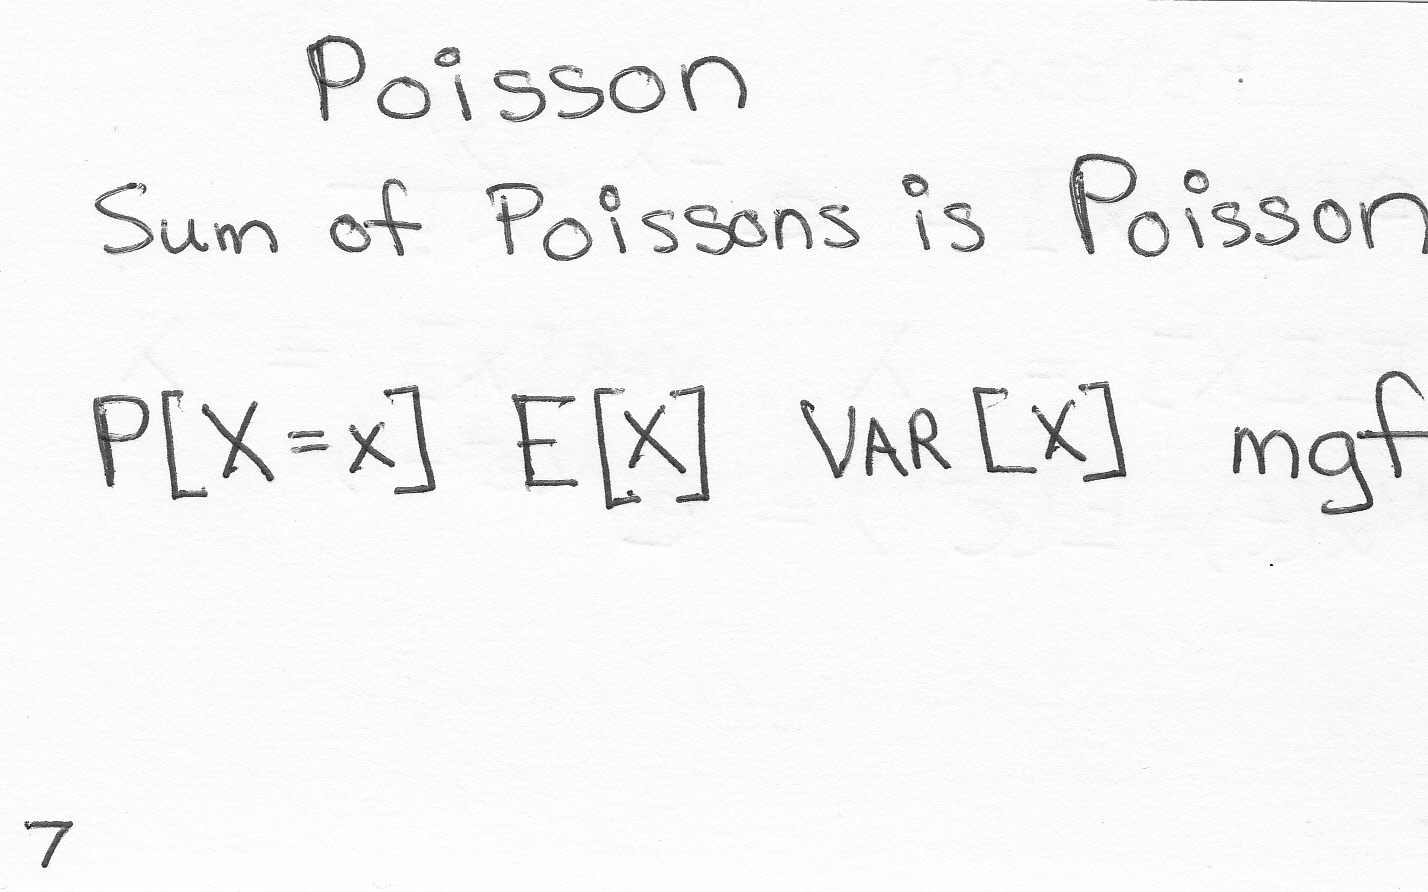 Poisson
Sum of Poissons is Poisson
P[X=x] E[X] VAR[X] mgf
7